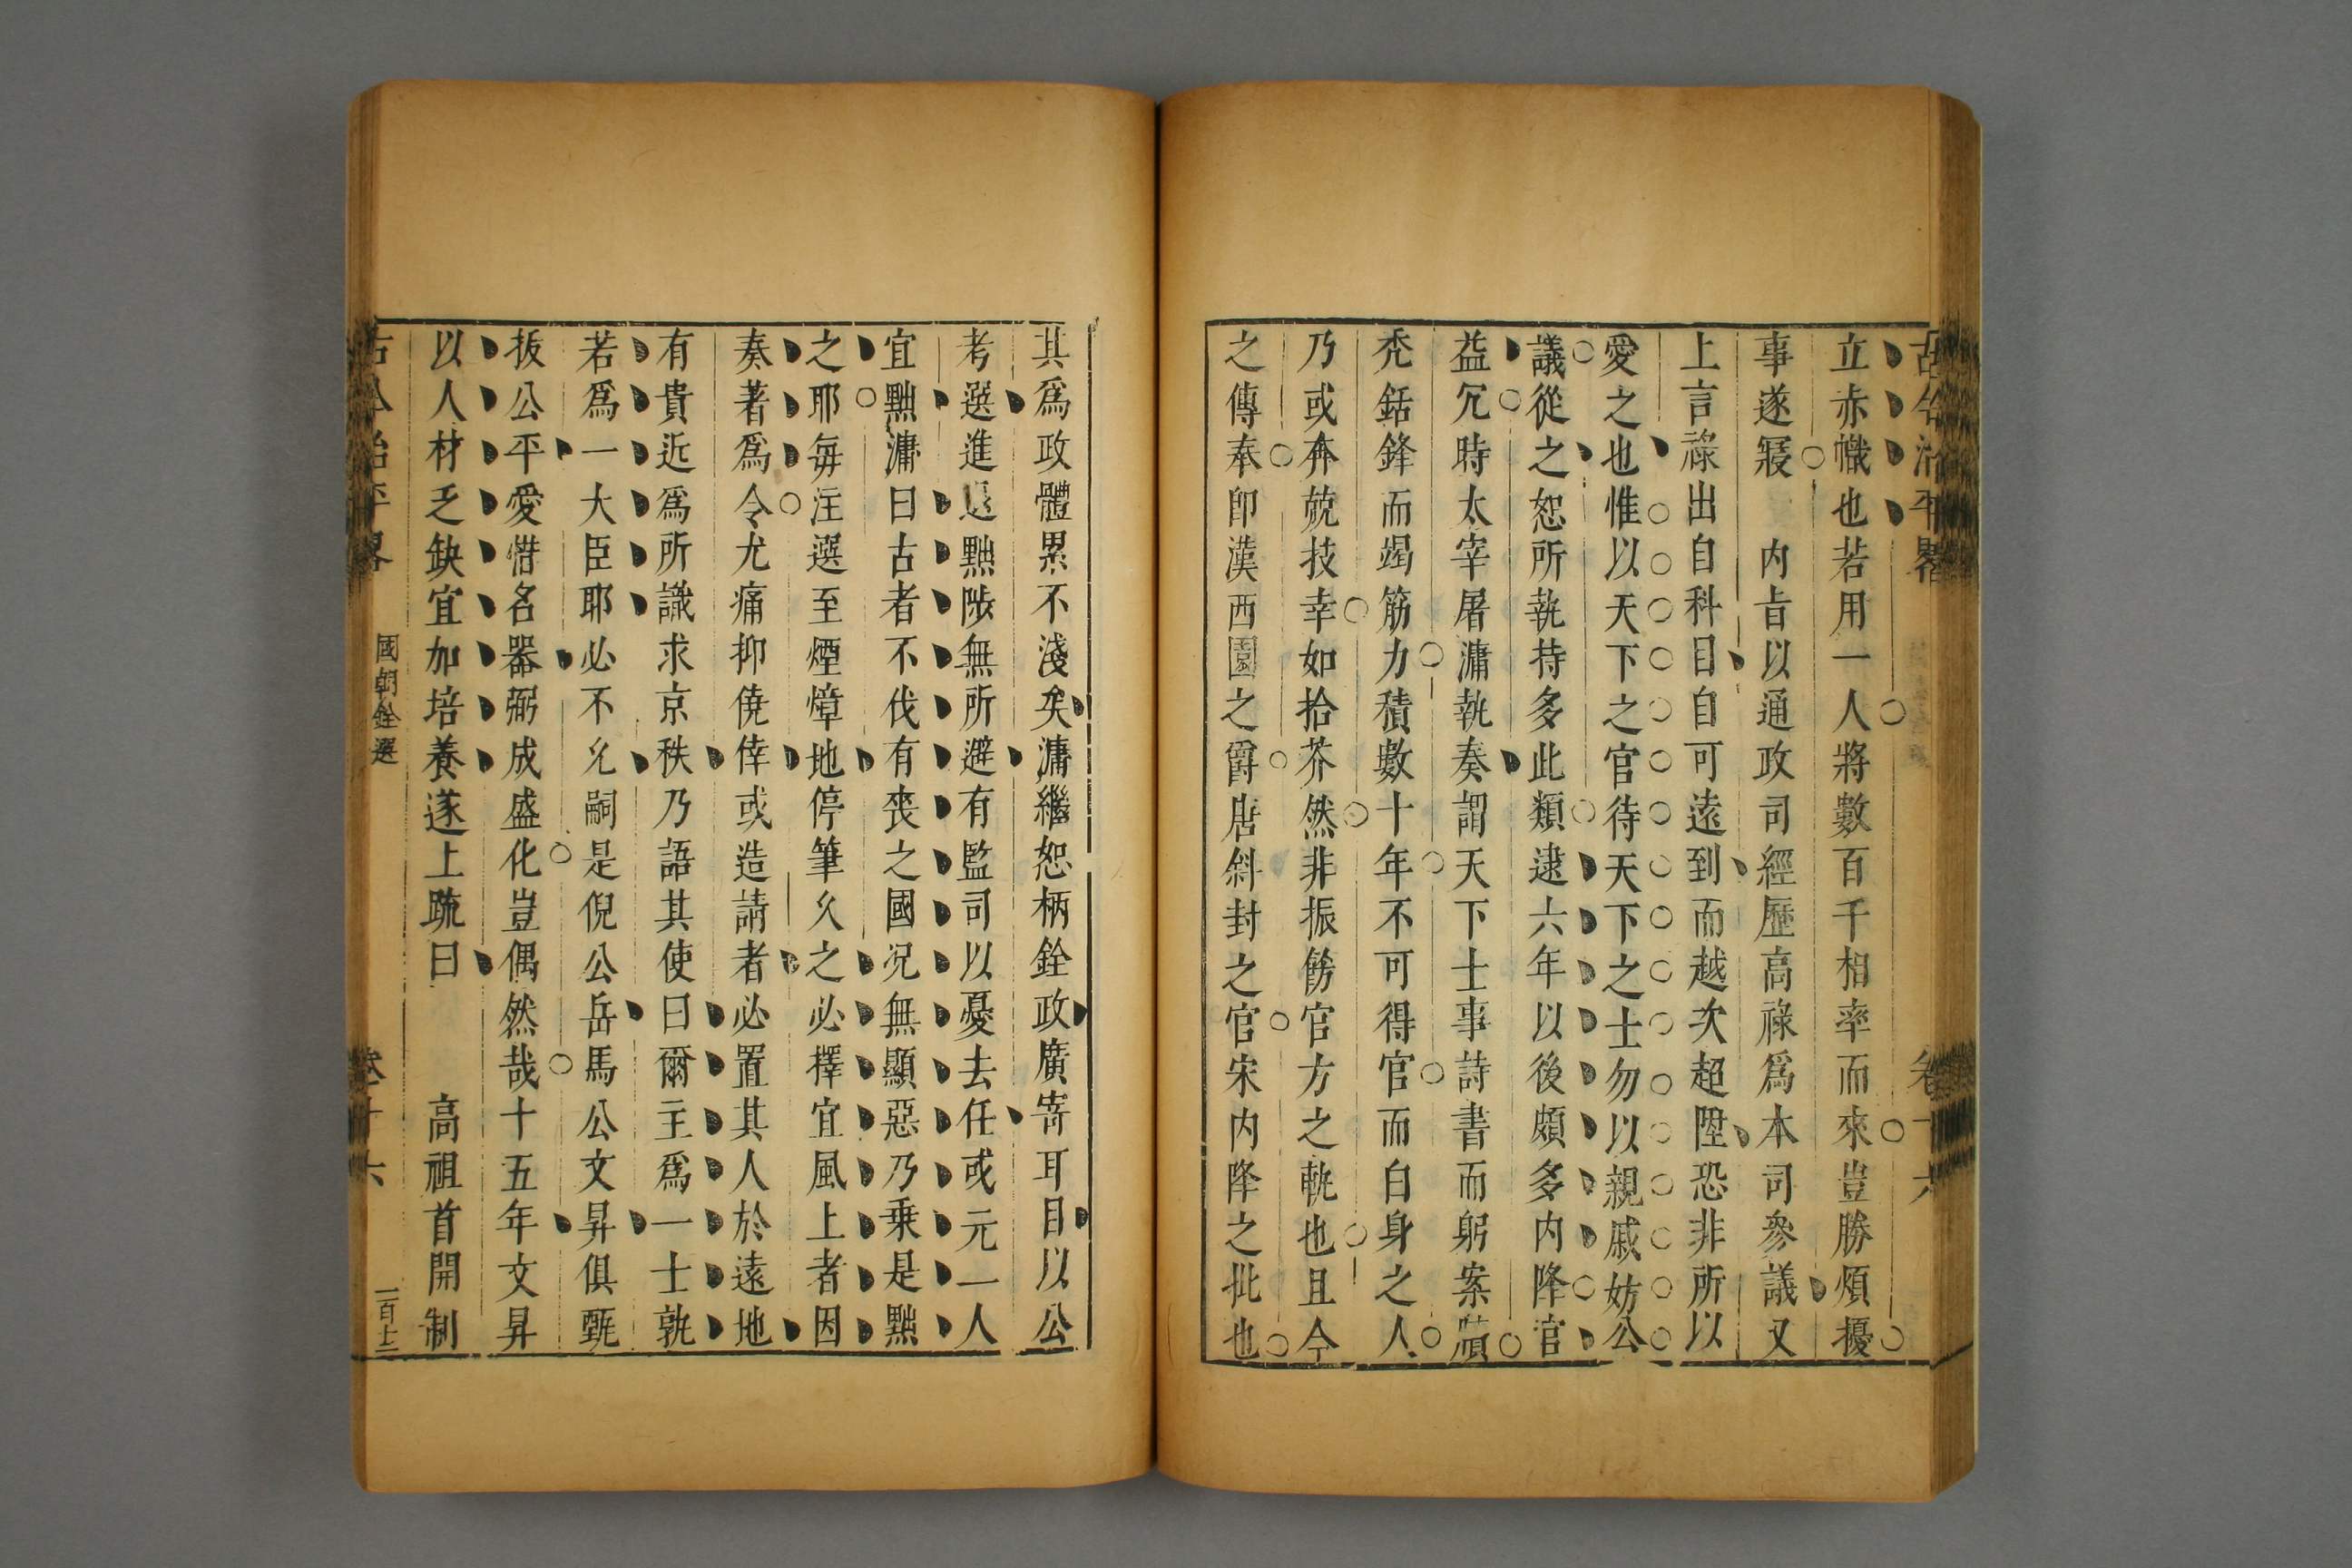 古今治平畧
卷十六
立赤幟也若用一人將數百千相率而來豈勝煩擾
事遂寢　內㫖以通政司經歷高祿爲本司參議又
上言祿出自科目自可遠到而越次超陞恐非所以
愛之也惟以天下之官待天下之士勿以親戚妨公
議從之恕所執持多此類逮六年以後頗多內降官
益冗時太宰屠滽執奏謂天下士事詩書而躬案牘
禿銛鋒而竭筋力積數十年不可得官而白身之人
乃或奔競技幸如拾芥然非振飭官方之軌也且今
之傳奉卽漢西園之爵唐斜封之官宋內降之批也
其爲政體累不淺矣滽繼恕柄銓政廣寄耳目以公
考選進退黜陟無所避有監司以憂去任或元一人
宜黜滽曰古者不伐有喪之國况無顯惡乃乗是黜
之耶每注選至煙瘴地停筆久之必擇宜風土者因
奏著爲令尤痛抑僥倖或造請者必置其人於遠地
有貴近爲所識求京秩乃語其使曰爾主爲一士孰
若爲一大臣耶必不允嗣是倪公岳馬公文昇俱甄
抜公平愛惜名器弼成盛化豈偶然哉十五年文昇
以人材乏缺宜加培養遂上疏曰　　高祖首開制
古今治平畧
國朝銓選
卷十六
一百十三